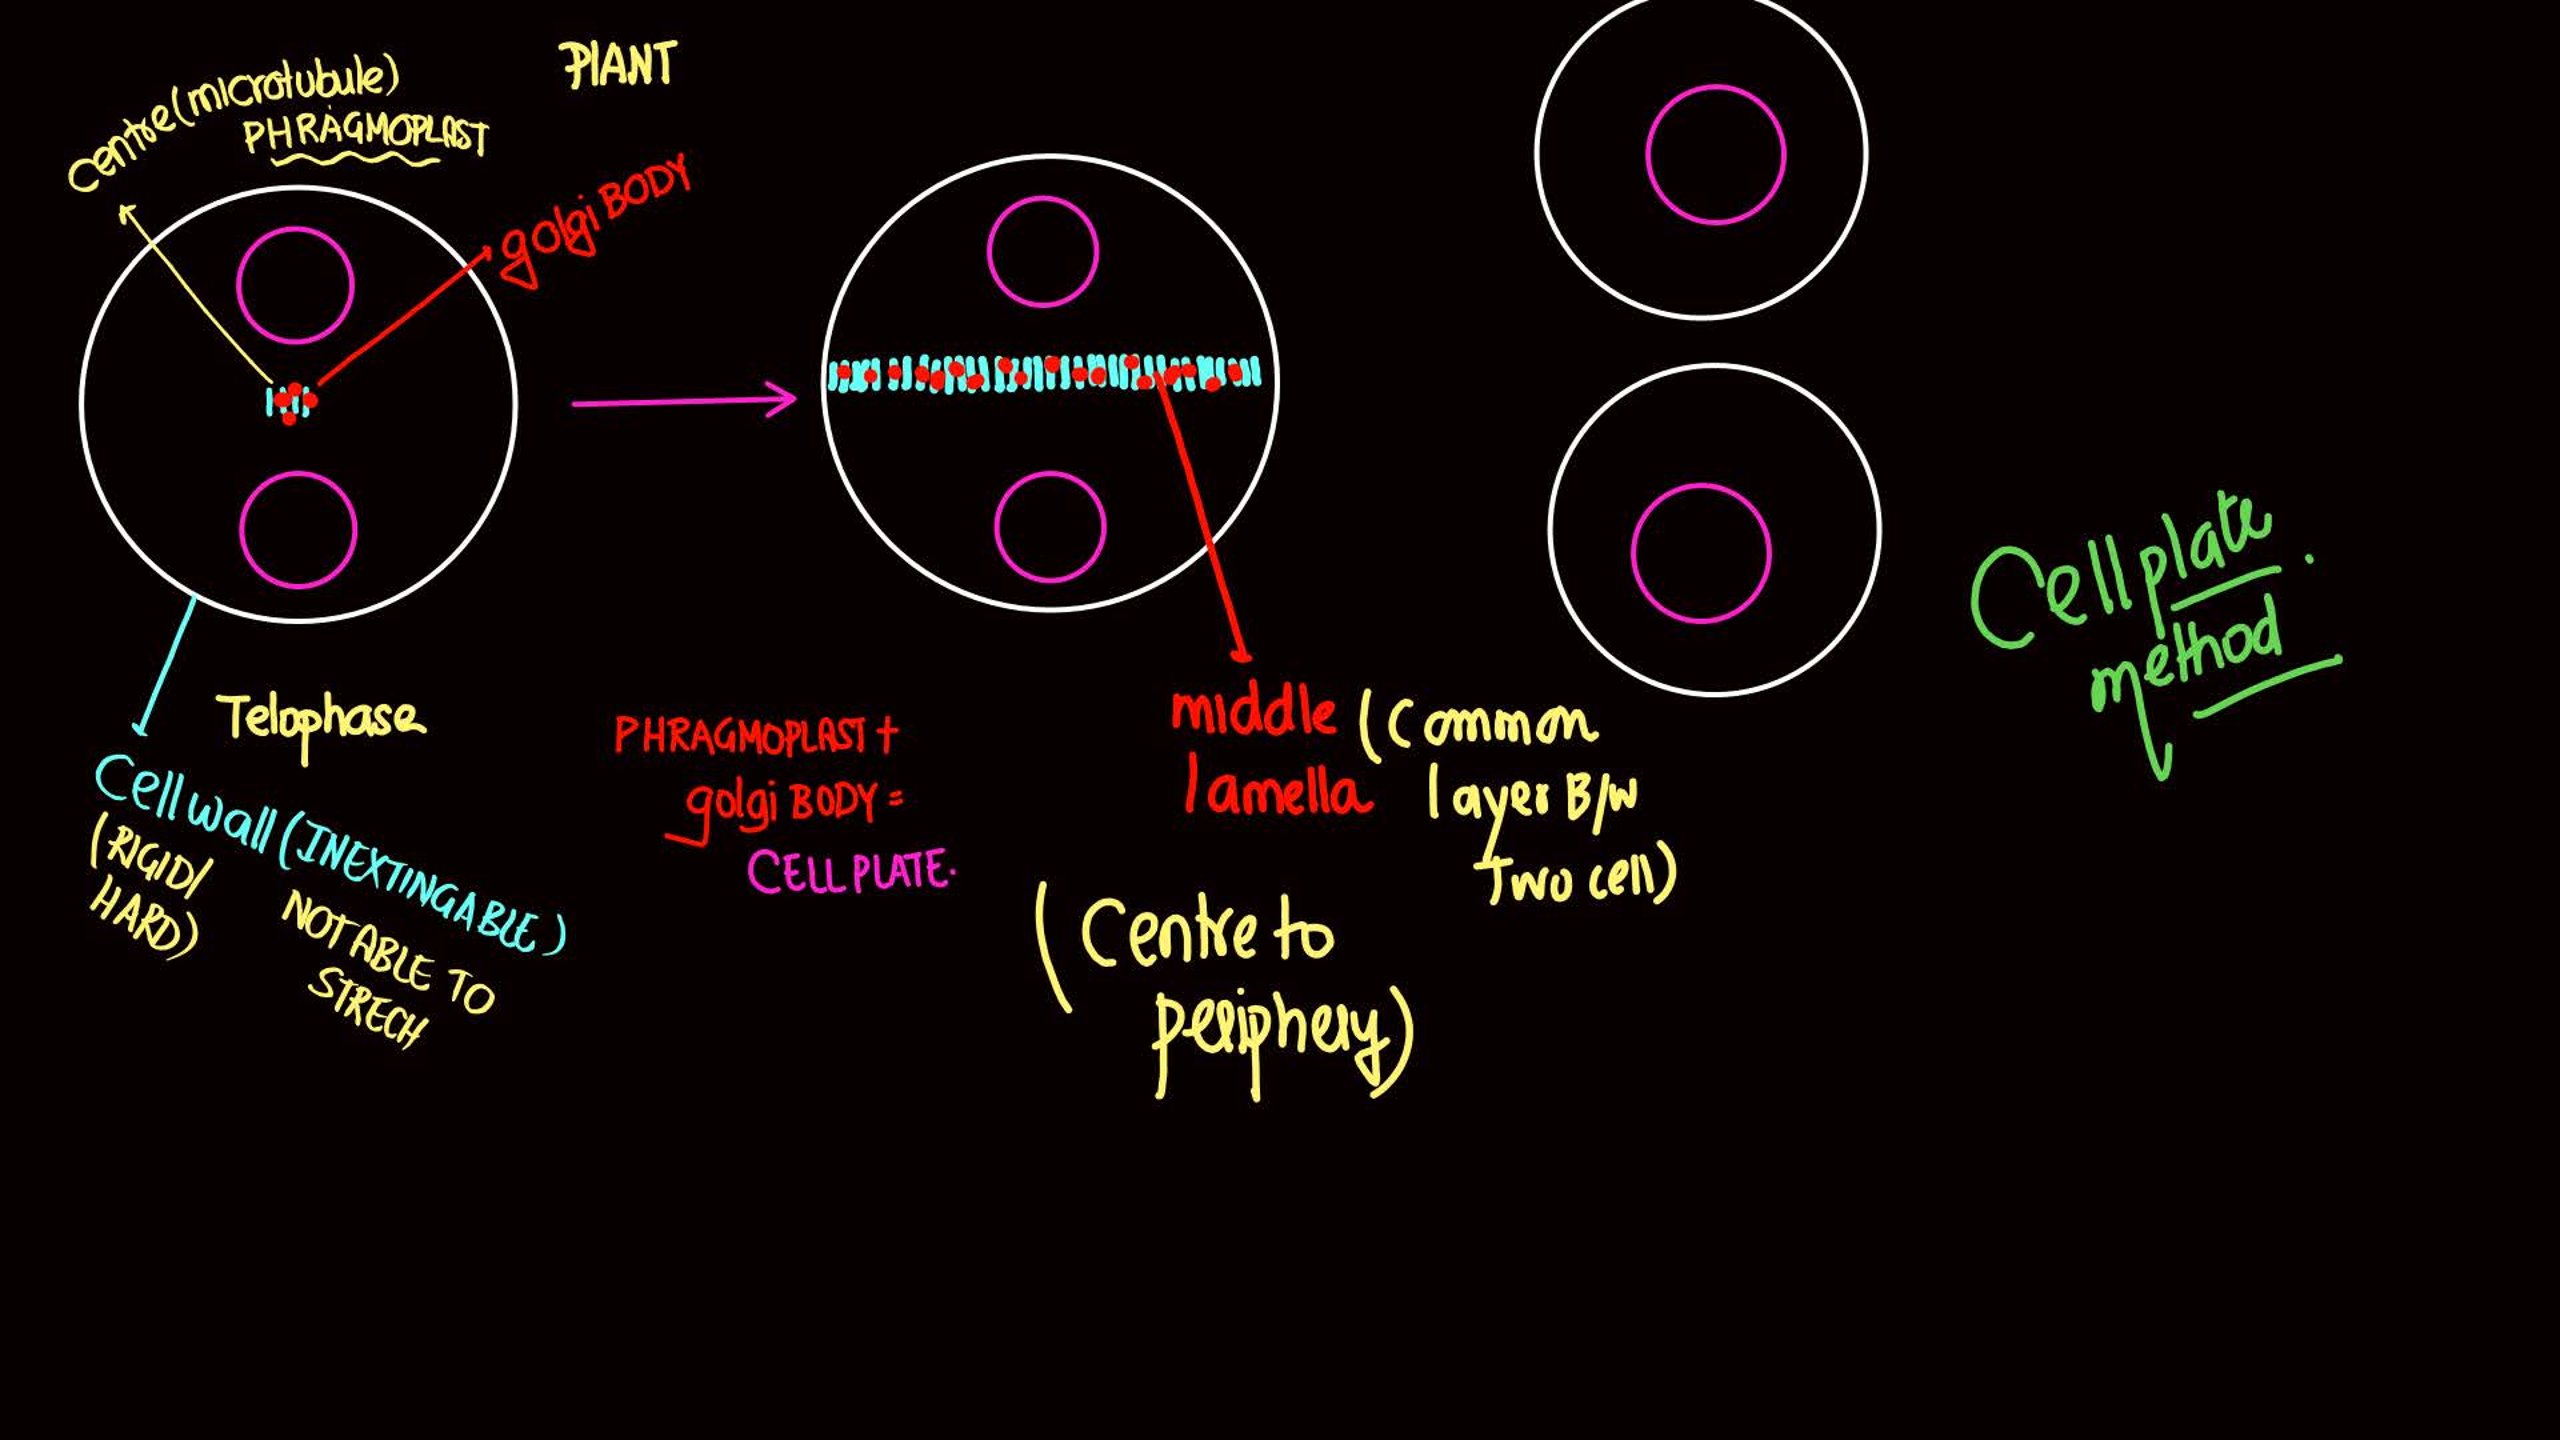 PlANT
Centre (microtubule)
PHRAGMOPLAST
golgi BODY
Cell plate.
method
Telophase
Cell wall (INEXTINGABLE)
(RIGID/
HARD)
NOT ABLE TO
STRECH
PHRAGMOPLAST +
golgi BODY =
CELL PLATE.
middle
lamella
(Common
layer B/w
Two cell)
(Centre to
periphery)